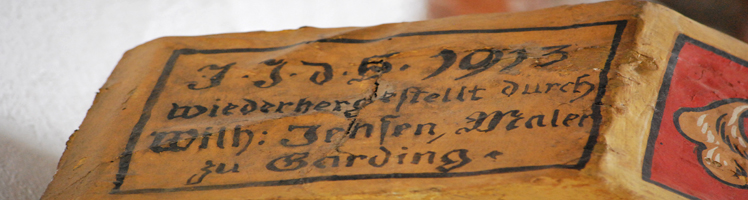 J. J. d. H. 1913
wiederhergestellt durch
Wilh: Jensen, Maler
zu Garding.